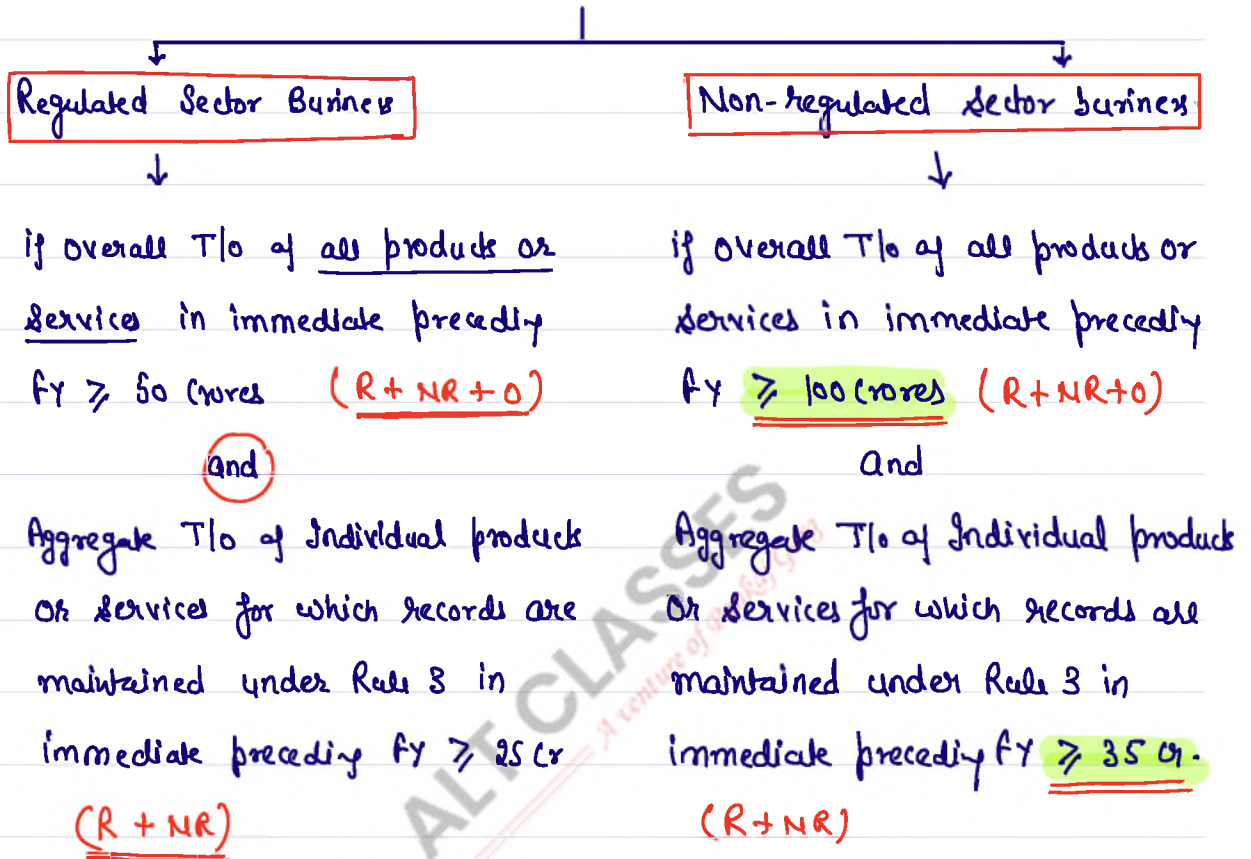 Regulated Sector Business
Non-regulated Sector business
if overall T/o of all products or
service in immediate precediy
fy ⩾ 50 Crores (R + NR + O)
and
Aggregate T/o of Individual products
or services for which records are
maintained under Rule 3 in
immediate precediy fy ⩾ 25 Cr
(R + NR)
if overall T/o of all products or
services in immediate precediy
fy ⩾ 100 Crores (R+NR+O)
and
Aggregate T/o of Individual products
or services for which records are
maintained under Rule 3 in
immediate precediy fy ⩾ 35 Cr.
(R+NR)
ALT CLASSES